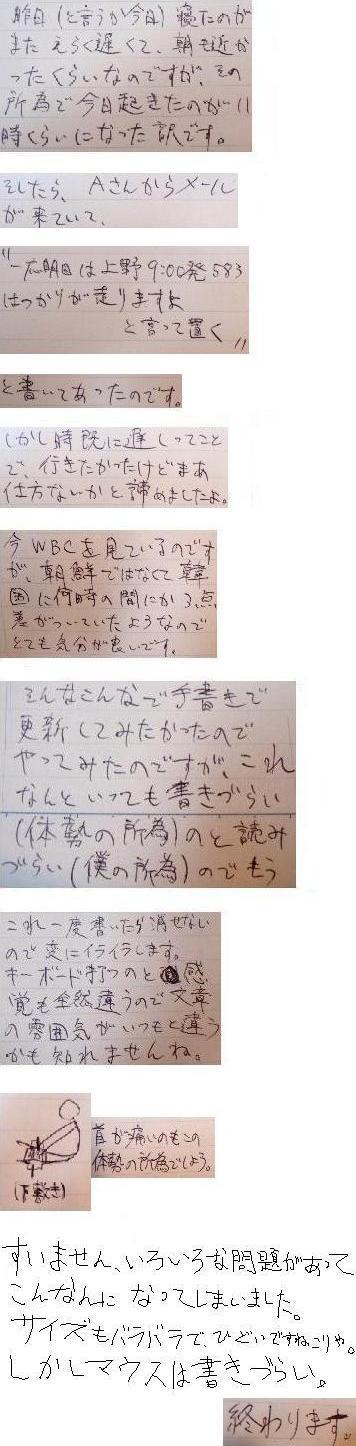 昨日(と言うか今日)寝たのが
またえらく遅くて、朝も近か
ったくらいなのですが、その
所為で今日起きたのが11
時くらいになった訳です。
そしたら、Aさんからメール
が来ていて、
"一応明日は上野9:00発583
はつかりが走りますよ
と言って置く"
と書いてあったのです。
しかし時既に遅しってこと
で、行きたかったけどまあ
仕方ないかと諦めましたよ。
今WBCを見ているのです
が、朝鮮ではなくて韓
国に何時の間にか3点
差がついていたようなので
とても気分が良いです。
そんなこんなで手書きで
更新してみたかったので
やってみたのですが、これ
なんといっても書きづらい
(体勢の所為)のと読み
づらい(僕の所為)のでもう
これ一度書いたら消せない
ので変にイライラします。
キーボード打つのと感
覚も全然違うので文章
の雰囲気がいつもと違う
かも知れませんね。
(下敷き)
首が痛いのもこの
体勢の所為でしょう。
すいません、いろいろな問題があって
こんなんになってしまいました。
サイズもバラバラで、ひどいですねこりゃ。
しかしマウスは書きづらい。
終わります。